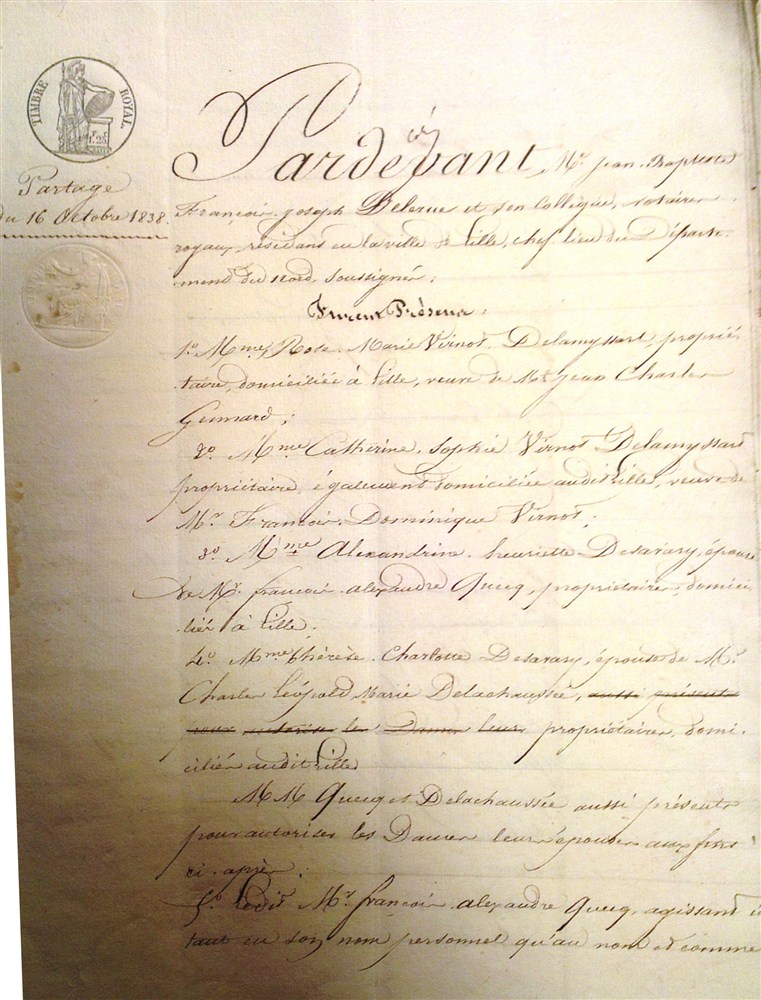 TIMBRE ROYAL
1F.25
Partage
du 16 Octobre 1838
Pardevant, Mr. Jean Baptiste
François Joseph Delerue et son Collègue, notaires
royaux, résidans en la ville de Lille, chef lieu du Départe-
ment du Nord, soussignés;
Furent Présens:
1o. Mme Rose Marie Virnot Delamyssart, proprié-
taire, domiciliée à Lille, veuve de Mr. Jean Charles
;
2o. Mme Catherine Sophie Virnot Delamyssart
propriétaire, également domiciliée audit Lille, veuve de
Mr. François Dominique Virnot;
3o. Mme Alexandrine henriette Desavary, épouse
de Mr. françois alexandre Quecq, propriétaires, domici
liés à Lille.
4o. Mme thérèse Charlotte Desavary, épouse de Mr.
Charles Léopold Marie Delachaussée, aussi présents
pour autoriser les Dames leurs propriétaires, domi-
ciliés audit Lille
M M Quecq et Delachaussée aussi présents
pour autoriser les Dames leurs épouses aux fins
ci-après;
5o. Ledit Mr. françois alexandre Quecq, agissant
tant en son nom personnel qu'au nom et comme